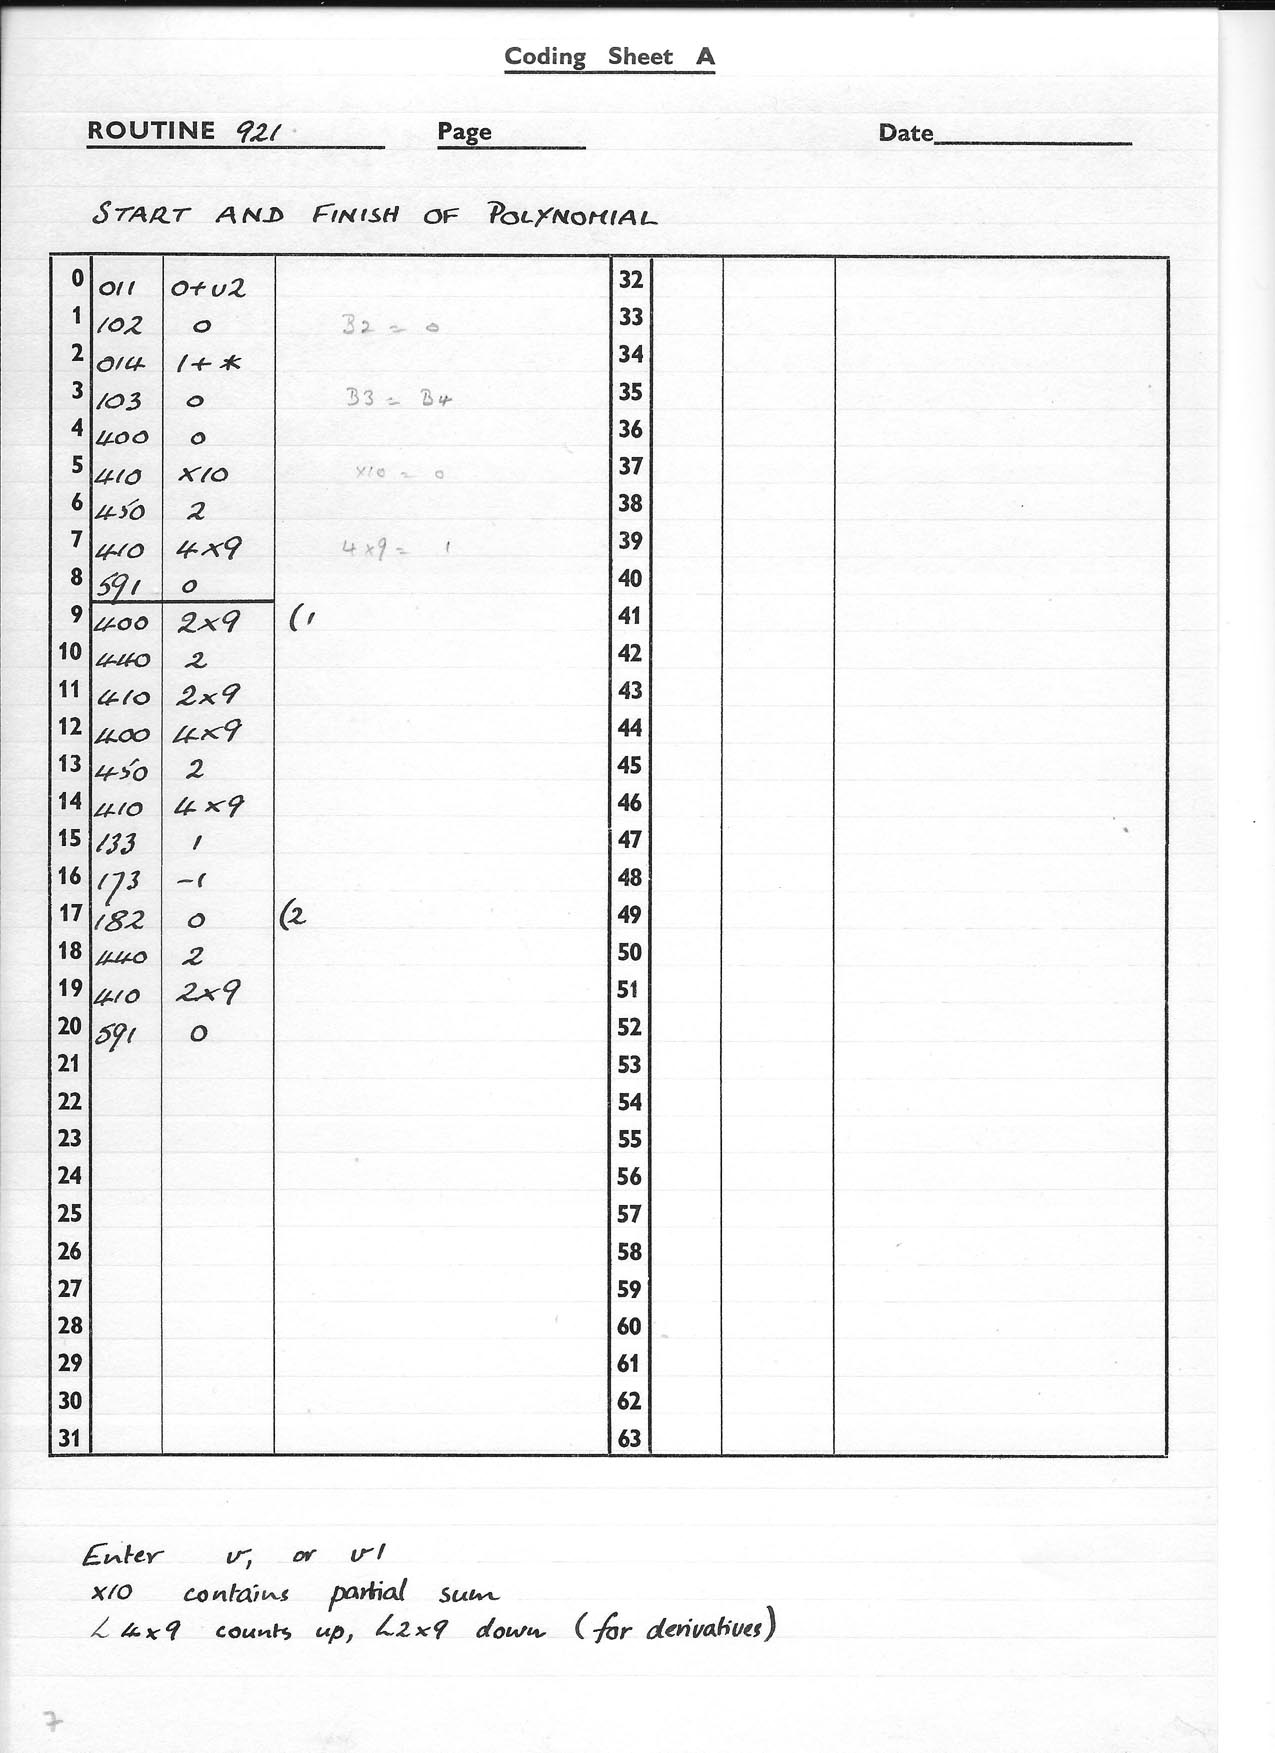 Coding Sheet A
ROUTINE 921 Page Date
START AND FINISH OF POLYNOMIAL
0 011 0+v2
1 102 0 B2 = 0
2 014 1+*
3 103 0 B3 = B4
4 400 0
5 410 x10 x10 = 0
6 450 2
7 410 4x9 4x9 = 1
8 591 0
9 400 2x9 (1
10 440 2
11 410 2x9
12 400 4x9
13 450 2
14 410 4x9
15 133 1
16 173 -1
17 182 0 (2
18 440 2
19 410 2x9
20 591 0
21
22
23
24
25
26
27
28
29
30
31
32
33
34
35
36
37
38
39
40
41
42
43
44
45
46
47
48
49
50
51
52
53
54
55
56
57
58
59
60
61
62
63
Enter v, or v1
x10 contains partial sum
L4x9 counts up, L2x9 down (for derivatives)
7